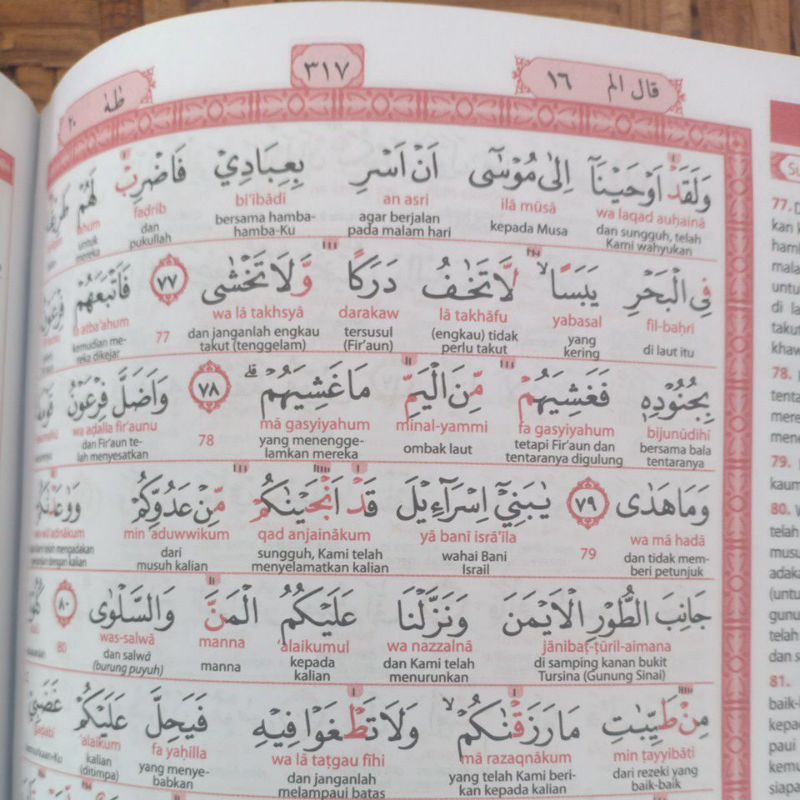 طٰهٰ ٢٠
٣١٧
قال الم ١٦
وَلَقَدْ اَوْحَيْنَآ اِلٰى مُوْسٰٓى اَنْ اَسْرِ بِعِبَادِيْ فَاضْرِبْ لَهُمْ
wa laqad auḥainā ilā mūsā an asri bi'ibādī fadrib
dan sungguh, telah Kami wahyukan kepada Musa agar berjalan pada malam hari bersama hamba-hamba-Ku dan pukullah untuk mereka
فِى الْبَحْرِ يَبَسًاۙ لَّا تَخٰفُ دَرَكًا وَّلَا تَخْشٰى ٧٧ فَاَتْبَعَهُمْ
fil-baḥri yabasal lā takhāfu darakaw wa lā takhsyā 77 fa atba'ahum
di laut itu yang kering (engkau) tidak perlu takut tersusul (Fir'aun) dan janganlah engkau takut (tenggelam) kemudian mereka dikejar
بِجُنُوْدِهٖ فَغَشِيَهُمْ مِّنَ الْيَمِّ مَا غَشِيَهُمْۗ ٧٨ وَاَضَلَّ فِرْعَوْنُ
bijunūdihī fa gasyiyahum minal-yammi mā gasyiyahum 78 wa aḍalla fir'aunu
bersama bala tentaranya tetapi Fir'aun dan tentaranya digulung ombak laut yang menenggelamkan mereka dan Fir'aun telah menyesatkan
وَمَا هَدٰى ٧٩ يٰبَنِيْٓ اِسْرَاۤءِيْلَ قَدْ اَنْجَيْنٰكُمْ مِّنْ عَدُوِّكُمْ وَوٰعَدْنٰكُمْ
wa mā hadā 79 yā banī isrā'īla qad anjainākum min 'aduwwikum
dan tidak memberi petunjuk wahai Bani Israil sungguh, Kami telah menyelamatkan kalian dari musuh kalian
جَانِبَ الطُّوْرِ الْاَيْمَنَ وَنَزَّلْنَا عَلَيْكُمُ الْمَنَّ وَالسَّلْوٰى ٨٠
jānibaṭ-ṭūril-aimana wa nazzalnā 'alaikumul manna was-salwā 80
di samping kanan bukit Tursina (Gunung Sinai) dan Kami telah menurunkan kepada kalian manna dan salwā (burung puyuh)
مِنْ طَيِّبٰتِ مَا رَزَقْنٰكُمْۙ وَلَا تَطْغَوْا فِيْهِ فَيَحِلَّ عَلَيْكُمْ غَضَبِيْ
min ṭayyibāti mā razaqnākum wa lā taṭgau fīhi fa yaḥilla 'alaikum
dari rezeki yang baik-baik yang telah Kami berikan kepada kalian dan janganlah melampaui batas yang menyebabkan kalian (ditimpa)
77.
78.
79.
80.
81.